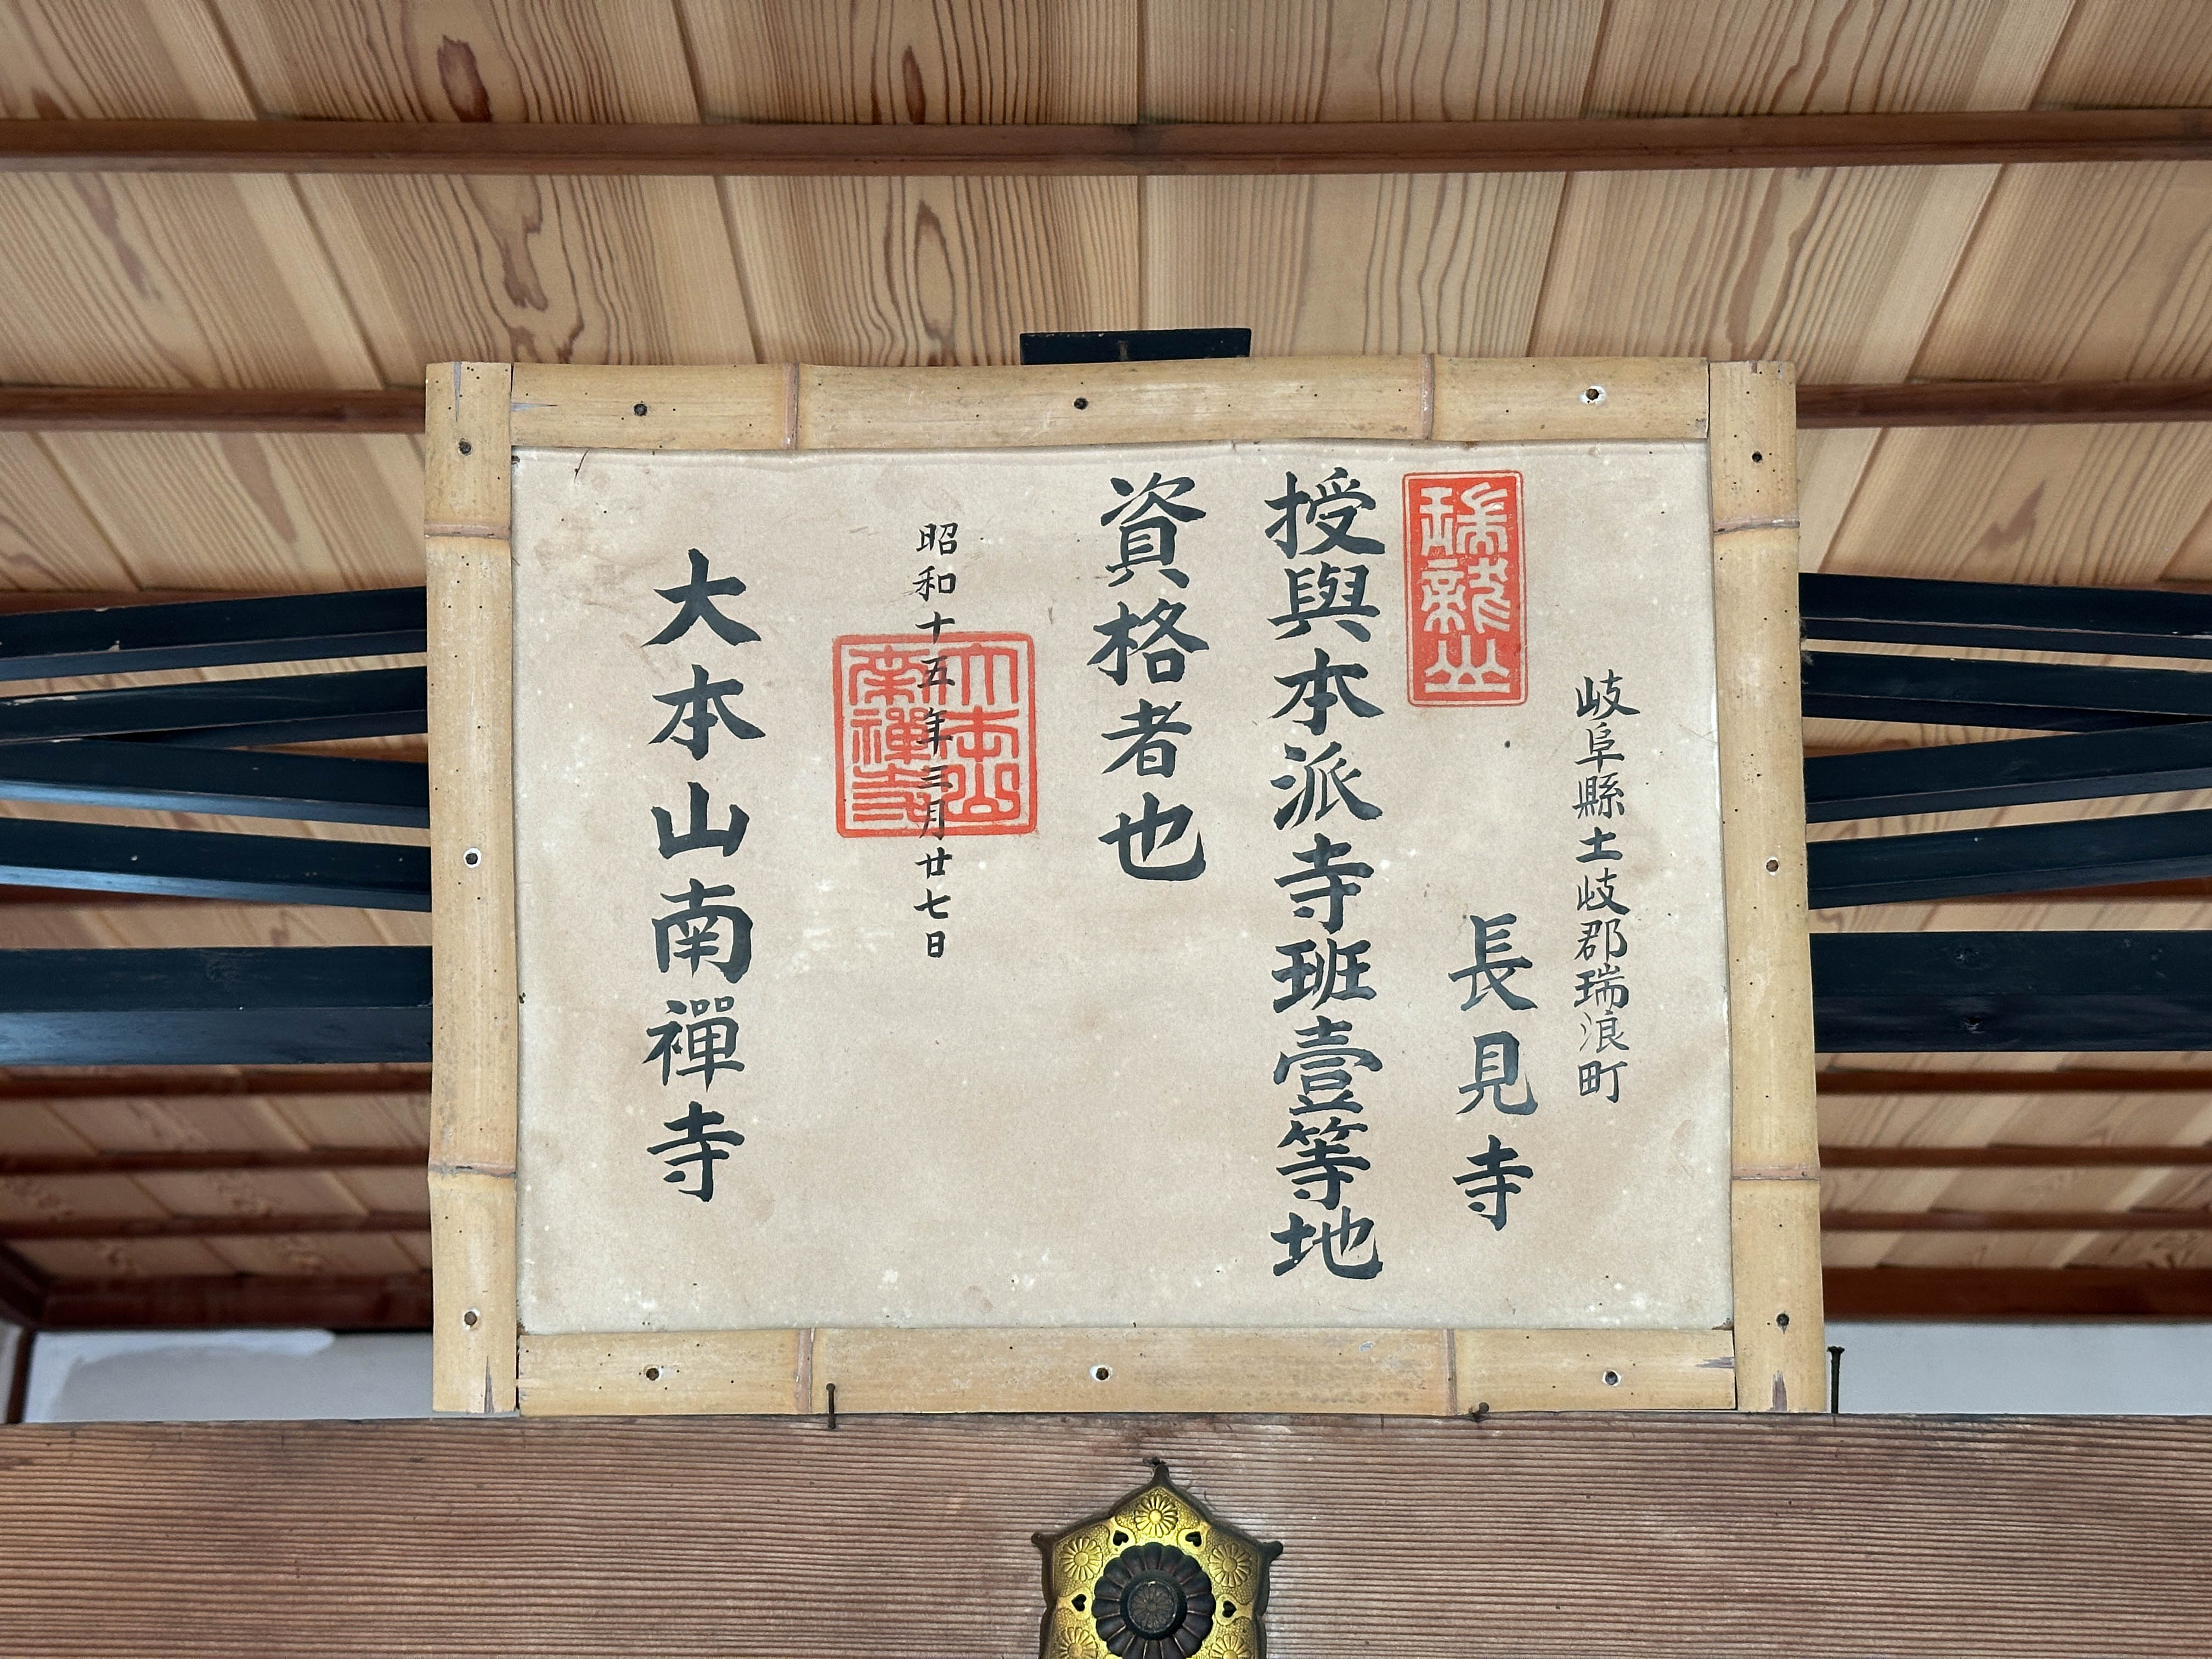 岐阜縣土岐郡瑞浪町
長見寺
瑞龍山
授與本派寺班壹等地
資格者也
昭和十五年三月廿七日
大本山南禪寺
大本山
南禪寺